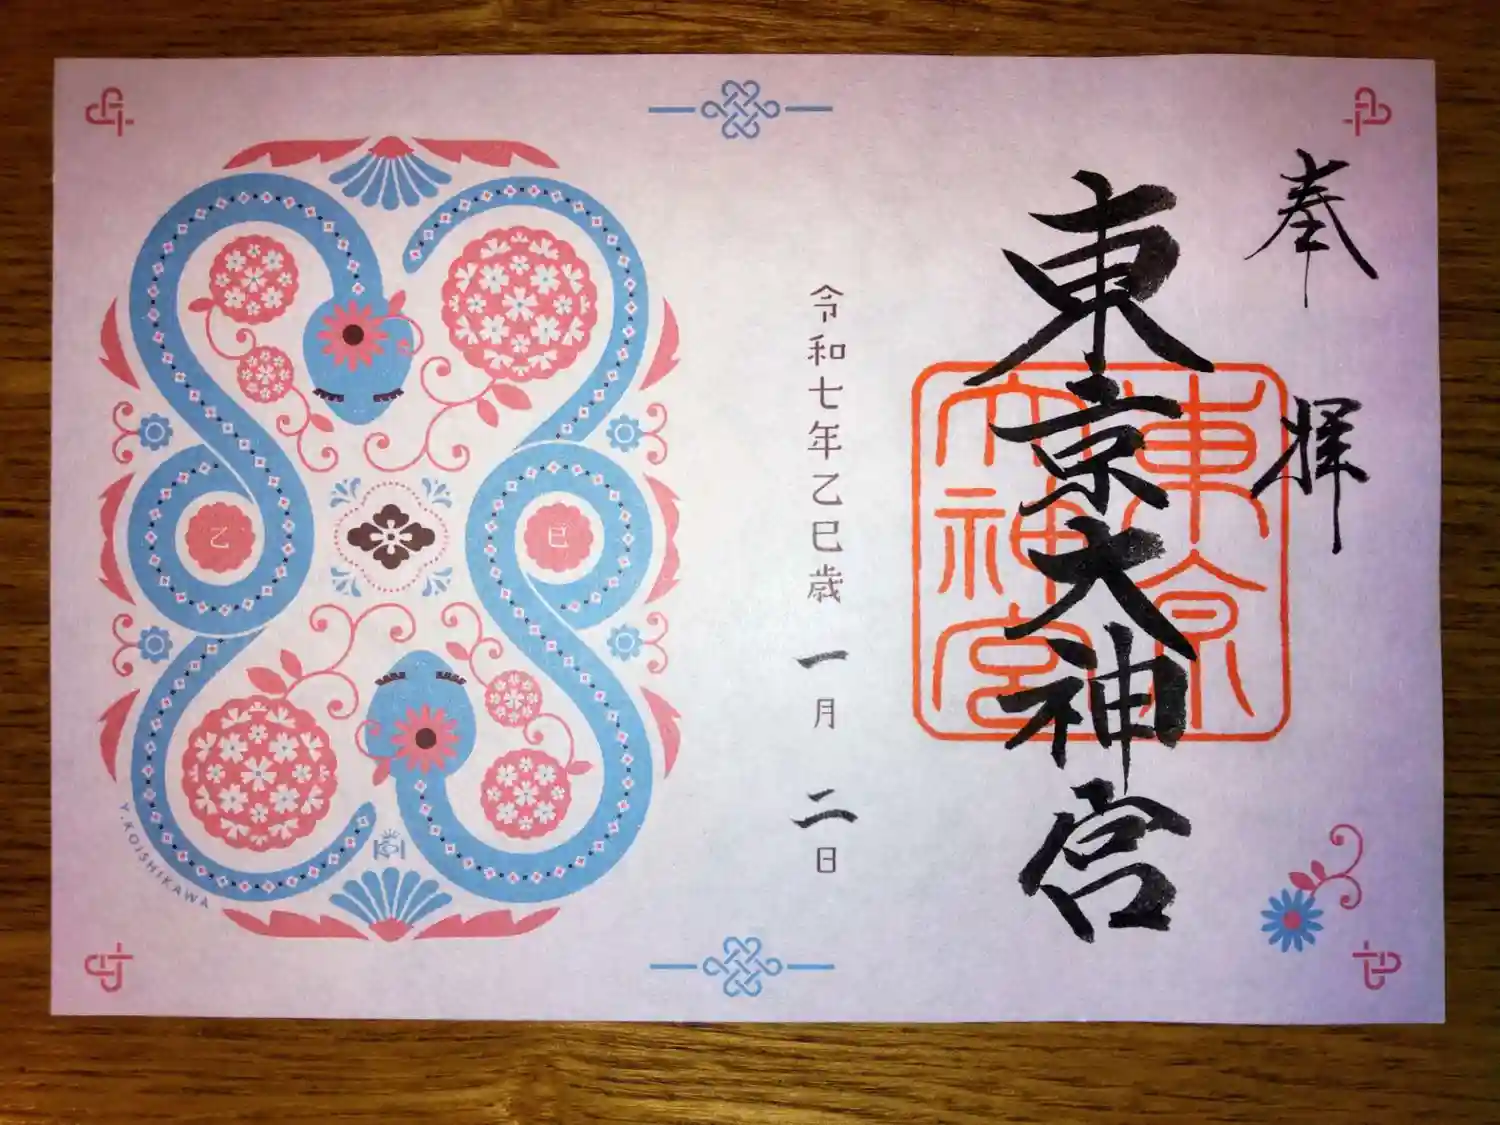 奉拝
東京大神宮
東京
大神宮
令和七年乙巳歳 一月 二日
乙
巳
Y.KOISHIKAWA